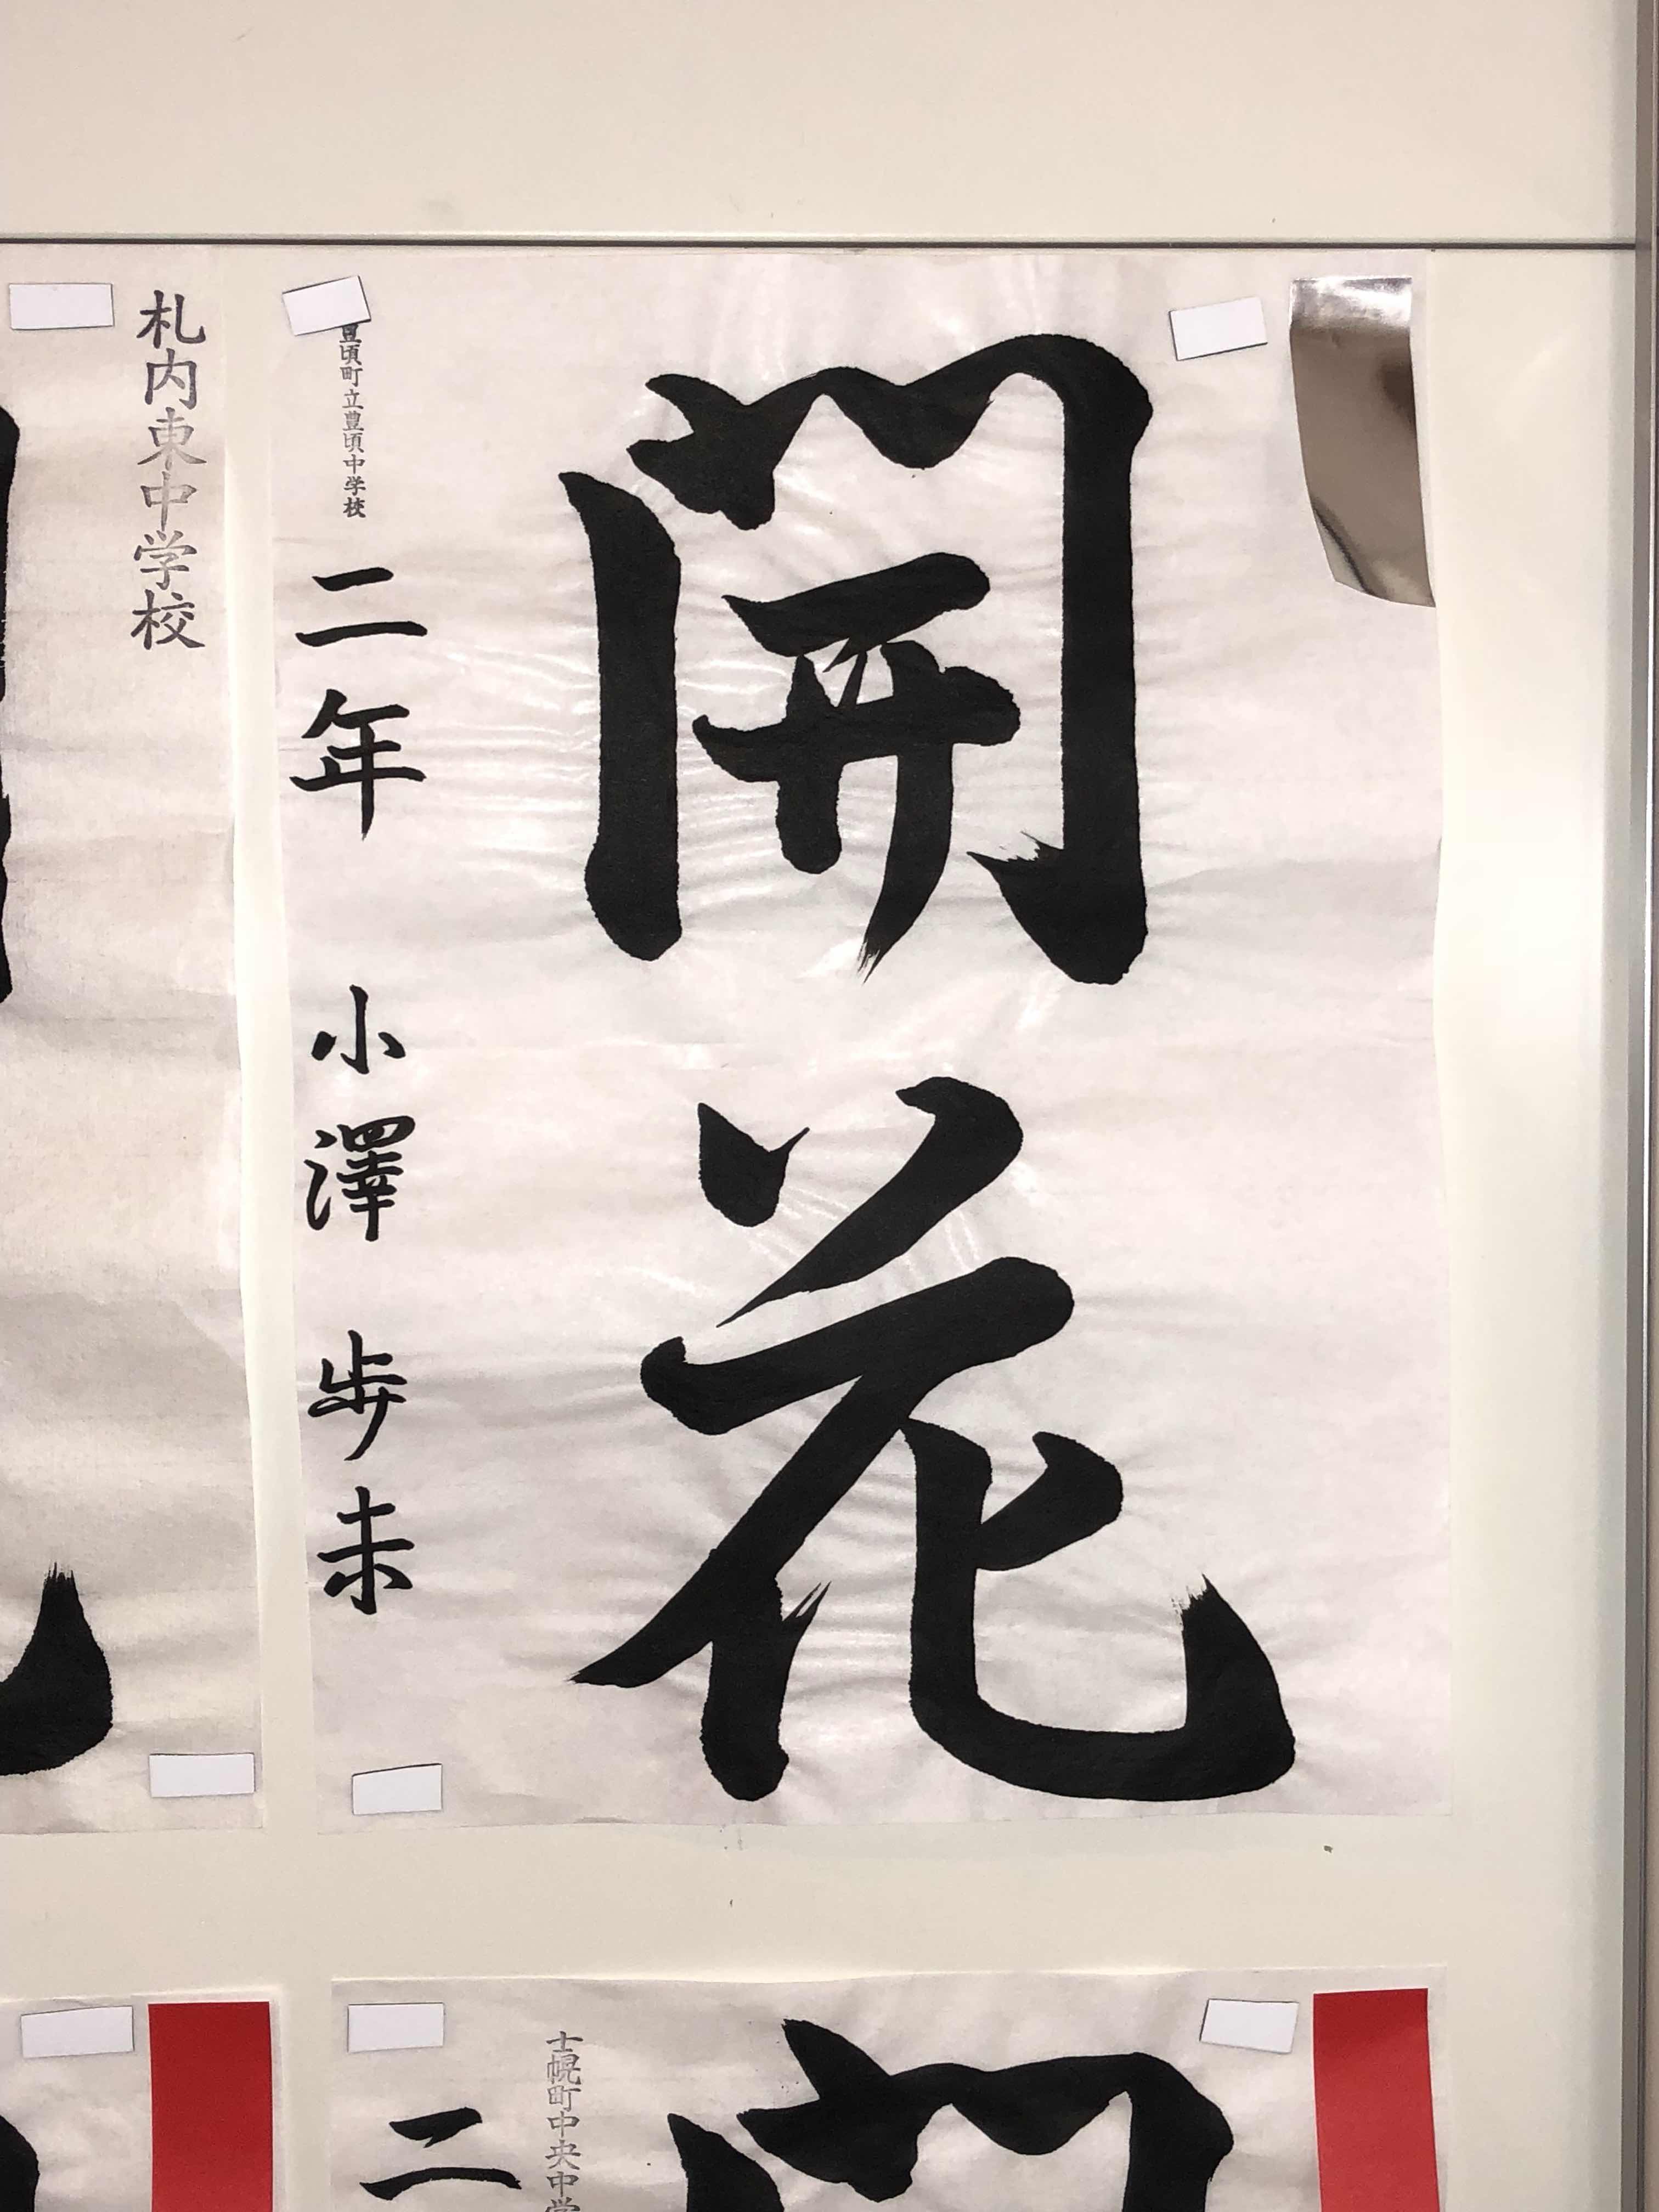 開花
豊頃町立豊頃中学校
二年 小澤 歩未
札内東中学校
士幌町中央中学
二